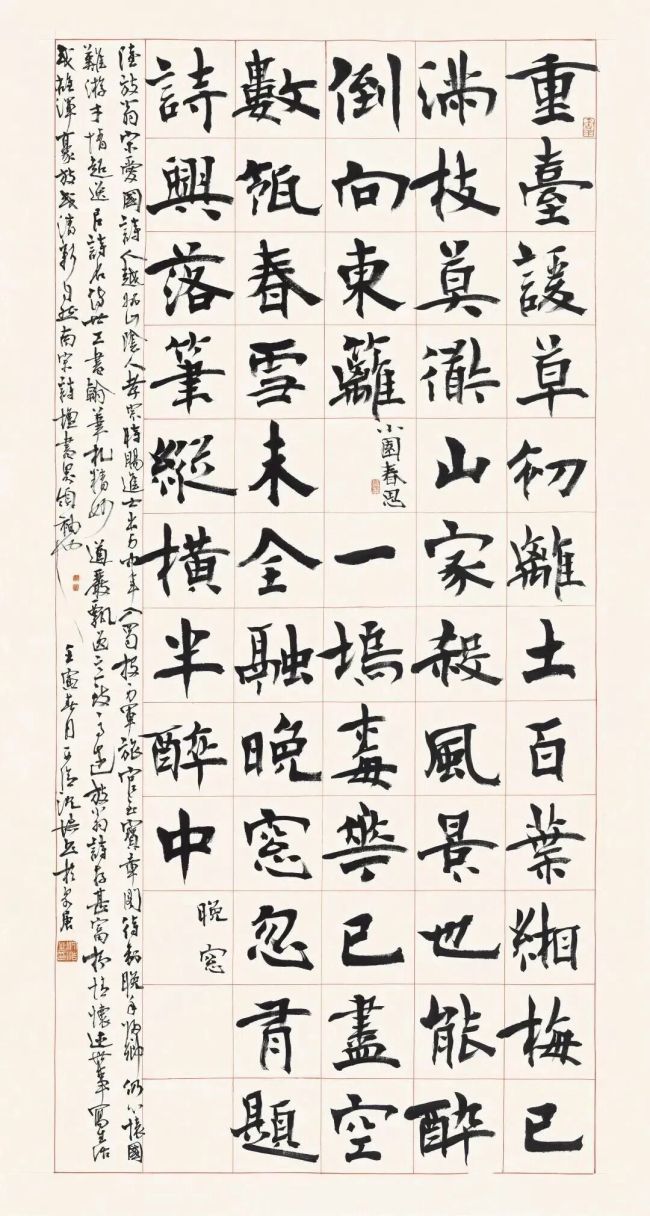 重臺諼草初離土百葉緗梅已
滿枝莫衒山家殺風景也能醉
倒向東籬
小園春思
一塢梅華已盡空
數春雪未全融晚窓忽有題
詩興落筆縱橫半醉中
晚窓
陸放翁宋愛國詩人越州山陰人孝宗時賜進士出身中年入蜀投身軍旅官至寶章閣待制晚年歸鄉仍心懷國
難游才情超逸以詩名世工書翰筆札精妙遒嚴飄逸意致高遠放翁詩存甚富抒情懷述世事寫生活
或雄渾豪放或清新自然南宋詩壇書界領袖也
壬寅春月於京居